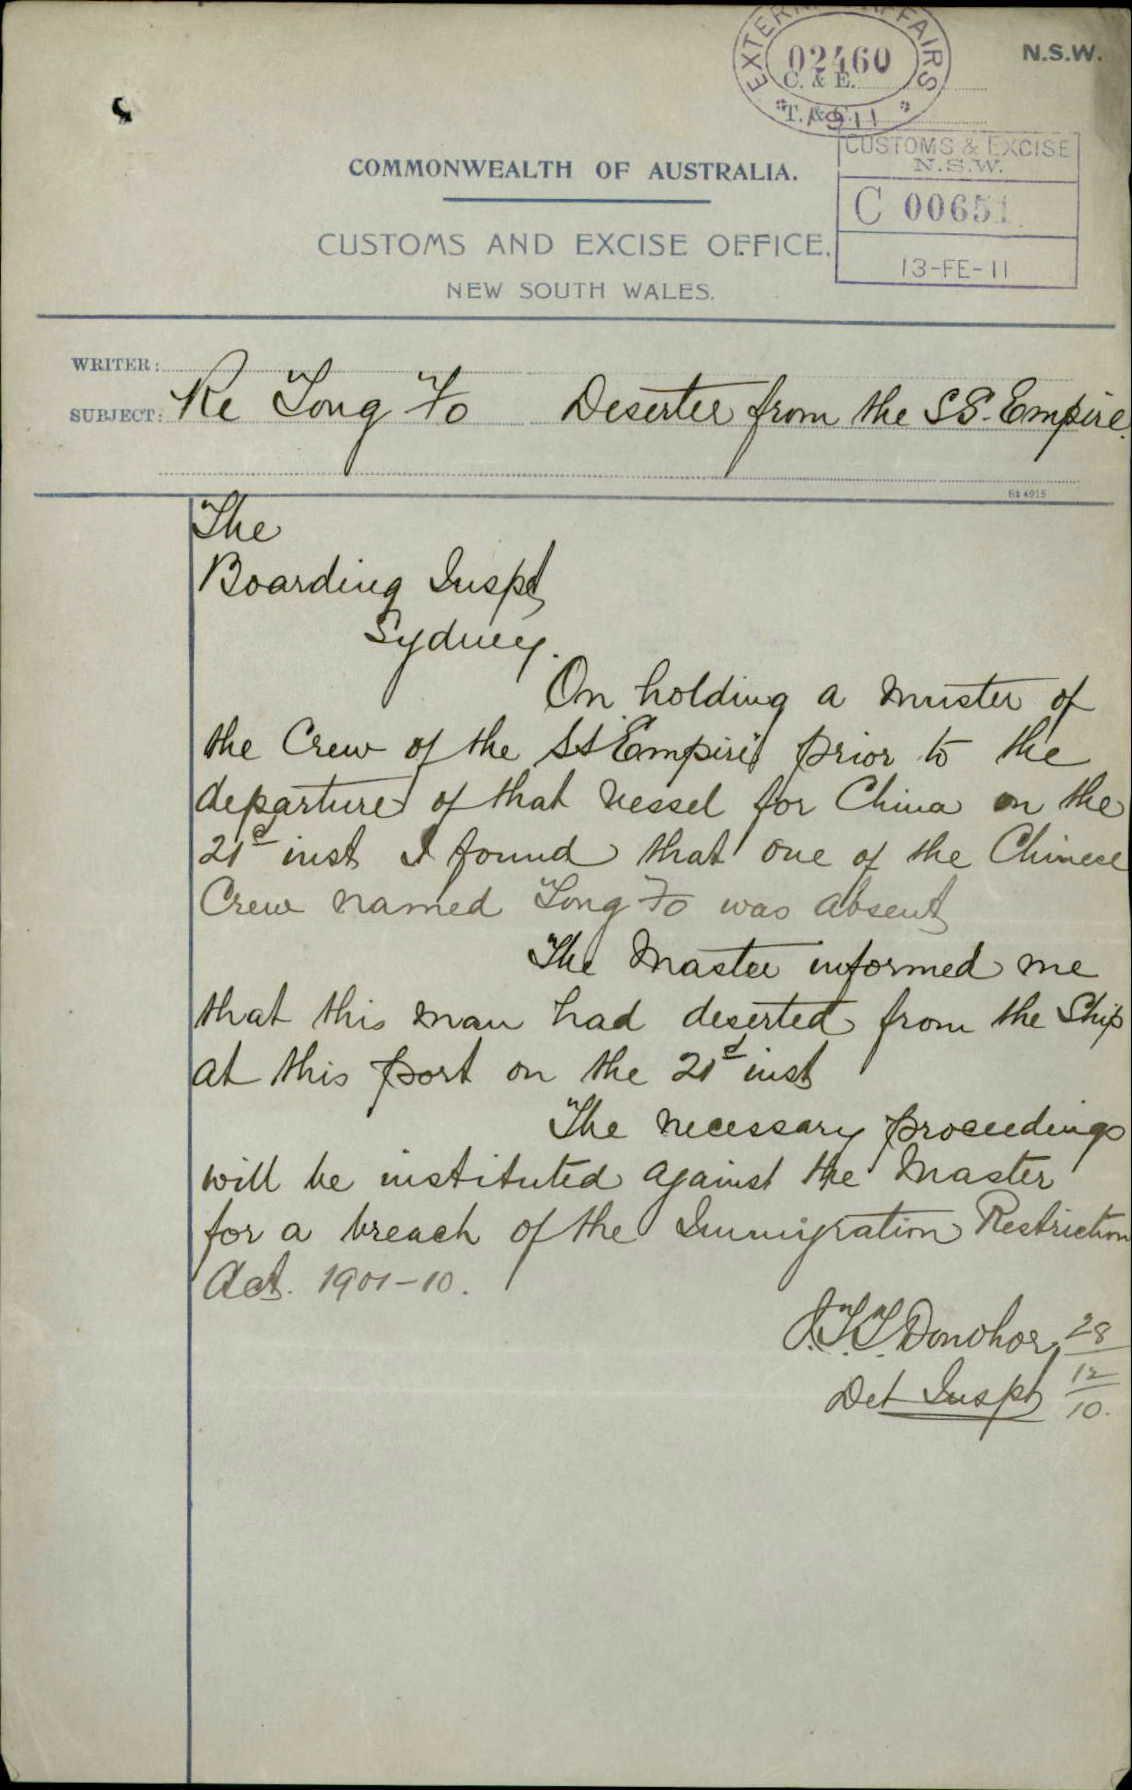 EXTERNAL AFFAIRS
02460
1911
C. & E.
N.S.W.
CUSTOMS & EXCISE
N.S.W.
C 00651
13-FE-11
COMMONWEALTH OF AUSTRALIA.
CUSTOMS AND EXCISE OFFICE,
NEW SOUTH WALES.
WRITER:
SUBJECT: Re Tong Fo Deserter from the S.S. Empire.
The
Boarding Inspt
Sydney.
On holding a muster of
the Crew of the SS "Empire" prior to the
departure of that vessel for China on the
21st inst I found that one of the Chinese
Crew named Tong Fo was absent
The Master informed me
that this man had deserted from the Ship
at this port on the 21st inst
The necessary proceedings
will be instituted against the Master
for a breach of the Immigration Restriction
Act. 1901-10.
J.T.T. Donohoe 28
Det Inspt 12
10.